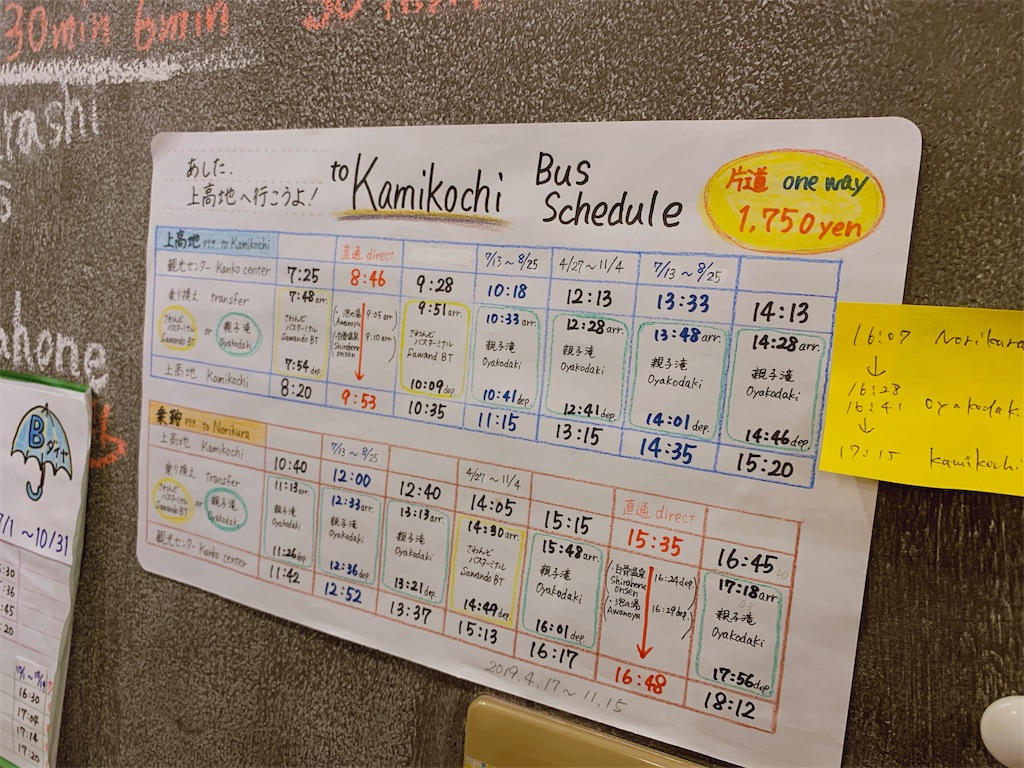 30min 6min
rashi
s
ahome
あした、
上高地へ行こうよ!
to Kamikochi Bus Schedule
片道 one way
1,750yen
上高地 行き to Kamikochi 直通 direct 7/13〜8/25 4/27〜11/4 7/13〜8/25
観光センター Kanko center 7:25 8:46 9:28 10:18 12:13 13:33 14:13
乗り換え transfer
さわんどバスターミナル Sawando BT or 親子滝 Oyakodaki
7:48 arr. さわんどバスターミナル Sawando BT 7:54 dep.
(・泡の湯 Awanoyu 9:05 arr.
・白骨温泉 Shirahone onsen 9:10 arr.)
9:51 arr. さわんどバスターミナル Sawand BT 10:09 dep.
10:33 arr. 親子滝 Oyakodaki 10:41 dep.
12:28 arr. 親子滝 Oyakodaki 12:41 dep.
13:48 arr. 親子滝 Oyakodaki 14:01 dep.
14:28 arr. 親子滝 Oyakodaki 14:46 dep.
上高地 Kamikochi 8:20 9:53 10:35 11:15 13:15 14:35 15:20
乗鞍 行き to Norikura 7/13〜8/25 4/27〜11/4 直通 direct
上高地 Kamikochi 10:40 12:00 12:40 14:05 15:15 15:35 16:45
乗り換え transfer
さわんどバスターミナル Sawando BT or 親子滝 Oyakodaki
11:13 arr. 親子滝 Oyakodaki 11:26 dep.
12:33 arr. 親子滝 Oyakodaki 12:36 dep.
13:13 arr. 親子滝 Oyakodaki 13:21 dep.
14:30 arr. さわんどバスターミナル Sawando BT 14:49 dep.
15:48 arr. 親子滝 Oyakodaki 16:01 dep.
(・白骨温泉 Shirahone onsen 16:24 dep.
・泡の湯 Awanoyu 16:29 dep.)
17:18 arr. 親子滝 Oyakodaki 17:56 dep.
観光センター Kanko center 11:42 12:52 13:37 15:13 16:17 16:48 18:12
2019.4.17〜11.15
16:07 Norikura
↓
16:28
16:41 Oyakodaki
↓
17:15 Kamikochi
B ダイヤ
7/1〜10/31
16:30
17:04
17:14
17:20